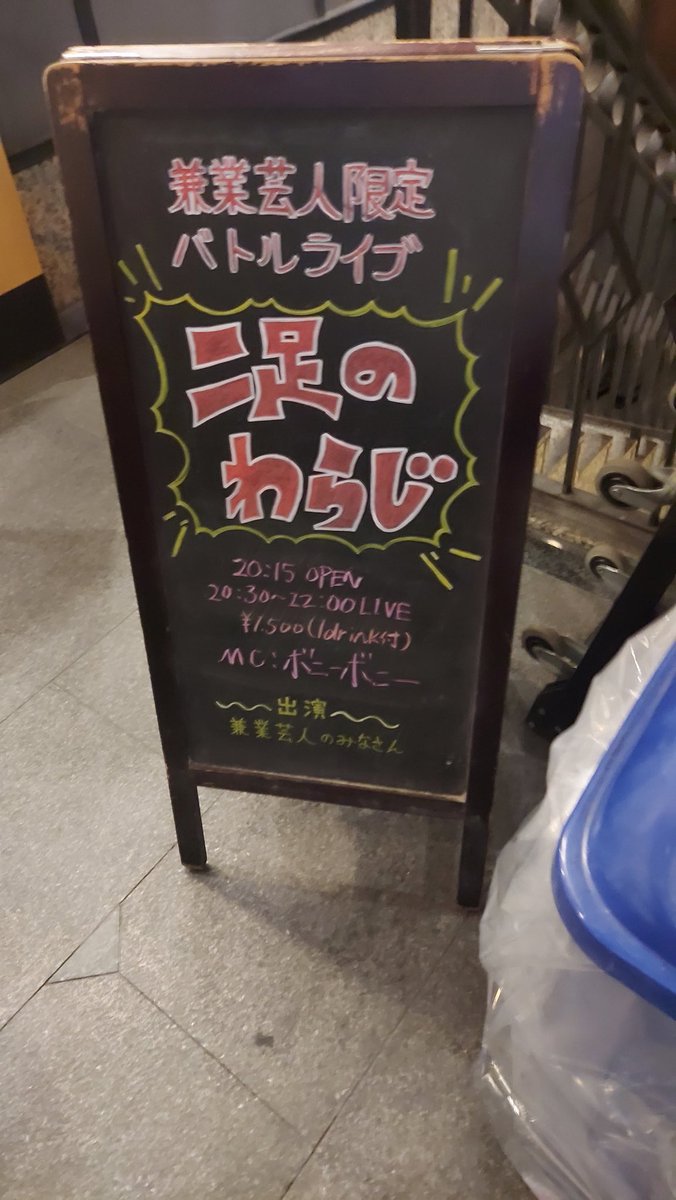 兼業芸人限定
バトルライブ
二足の
わらじ
20:15 OPEN
20:30〜22:00 LIVE
¥1,500(1drink付)
MC:ボニーボニー
〜出演〜
兼業芸人のみなさん